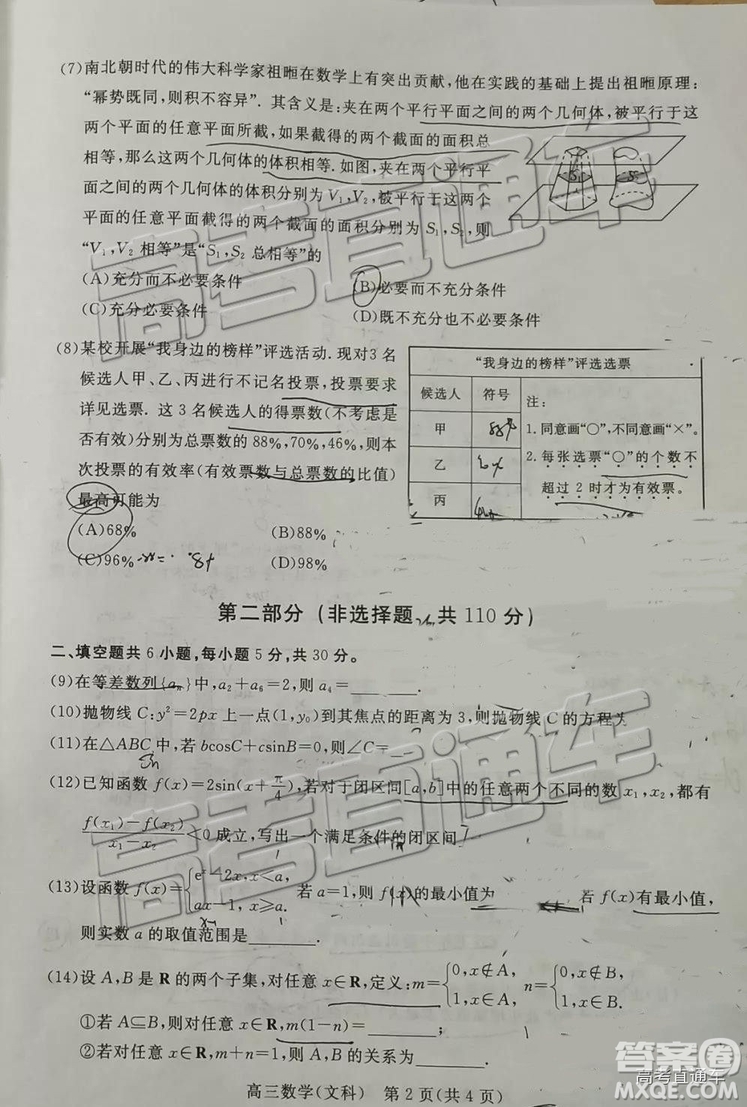 (7)南北朝时代的伟大科学家祖暅在数学上有突出贡献,他在实践的基础上提出祖暅原理:
“幂势既同,则积不容异”. 其含义是:夹在两个平行平面之间的两个几何体,被平行于这
两个平面的任意平面所截,如果截得的两个截面的面积总
相等,那么这两个几何体的体积相等. 如图,夹在两个平行平
面之间的两个几何体的体积分别为 V₁,V₂,被平行于这两个
平面的任意平面截得的两个截面的面积分别为 S₁,S₂,则
“V₁,V₂ 相等”是“S₁,S₂ 总相等”的
(A)充分而不必要条件
(B)必要而不充分条件
(C)充分必要条件
(D)既不充分也不必要条件
(8)某校开展“我身边的榜样”评选活动. 现对3名
候选人甲、乙、丙进行不记名投票,投票要求
详见选票. 这3名候选人的得票数(不考虑是
否有效)分别为总票数的 88%,70%,46%,则本
次投票的有效率(有效票数与总票数的比值)
最高可能为
(A)68%
(B)88%
(C)96%
(D)98%
“我身边的榜样”评选选票
候选人 符号
甲
乙
丙
注:
1. 同意画“○”,不同意画“×”。
2. 每张选票“○”的个数不
超过 2 时才为有效票。
第二部分(非选择题 共 110 分)
二、填空题共 6 小题,每小题 5 分,共 30 分。
(9)在等差数列{aₙ}中,a₂+a₆=2,则 a₄=______.
(10)抛物线 C:y²=2px 上一点(1,y₀)到其焦点的距离为 3,则抛物线 C 的方程为
(11)在△ABC 中,若 bcosC+csinB=0,则∠C=
(12)已知函数 f(x)=2sin(x+π/4),若对于闭区间[a,b]中的任意两个不同的数 x₁,x₂,都有
(f(x₁)-f(x₂))/(x₁-x₂)<0 成立,写出一个满足条件的闭区间
(13)设函数 f(x)={eˣ-2x,x<a, ax-1,x≥a. 若 a=1,则 f(x)的最小值为 若 f(x)有最小值,
则实数 a 的取值范围是______.
(14)设 A,B 是 R 的两个子集,对任意 x∈R,定义:m={0,x∉A, 1,x∈A, n={0,x∉B, 1,x∈B.
①若 A⊆B,则对任意 x∈R,m(1-n)=______;
②若对任意 x∈R,m+n=1,则 A,B 的关系为______.
高三数学(文科) 第 2 页(共 4 页)
高考直通车
高考直通车
高考直通车
答案圈
MXQE.COM